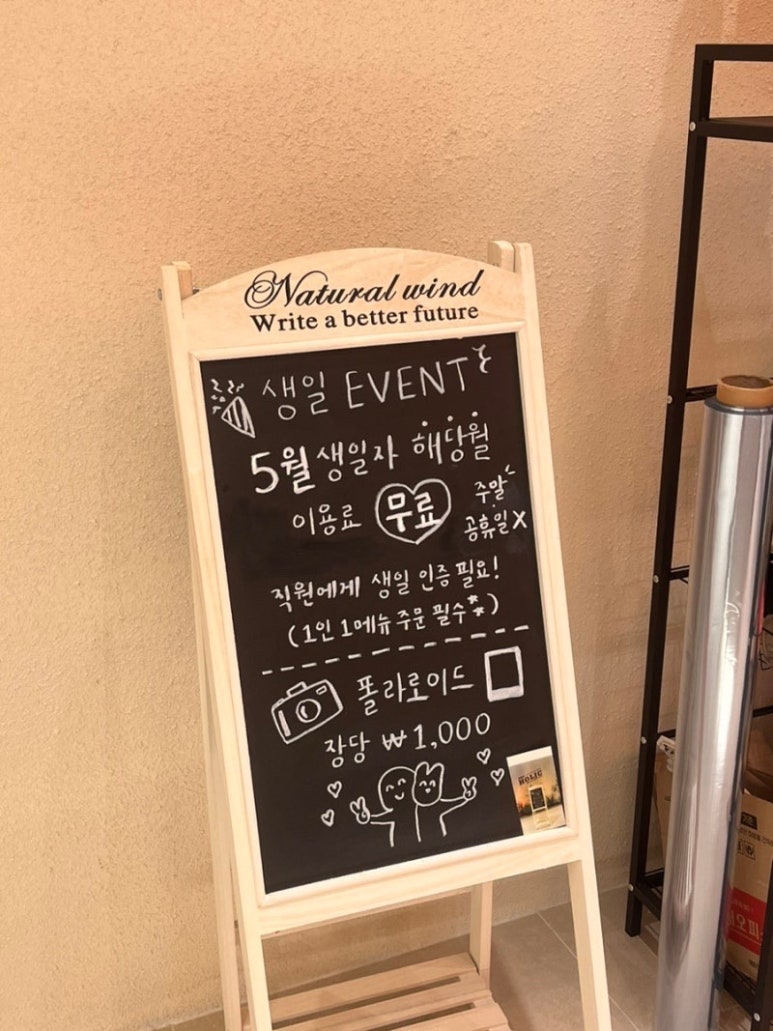 Natural wind
Write a better future
생일 EVENT
5월 생일자 해당월
이용료 무료 주말 공휴일X
직원에게 생일 인증 필요!
(1인 1메뉴 주문 필수)
폴라로이드
장당 ₩1,000
HOLIC